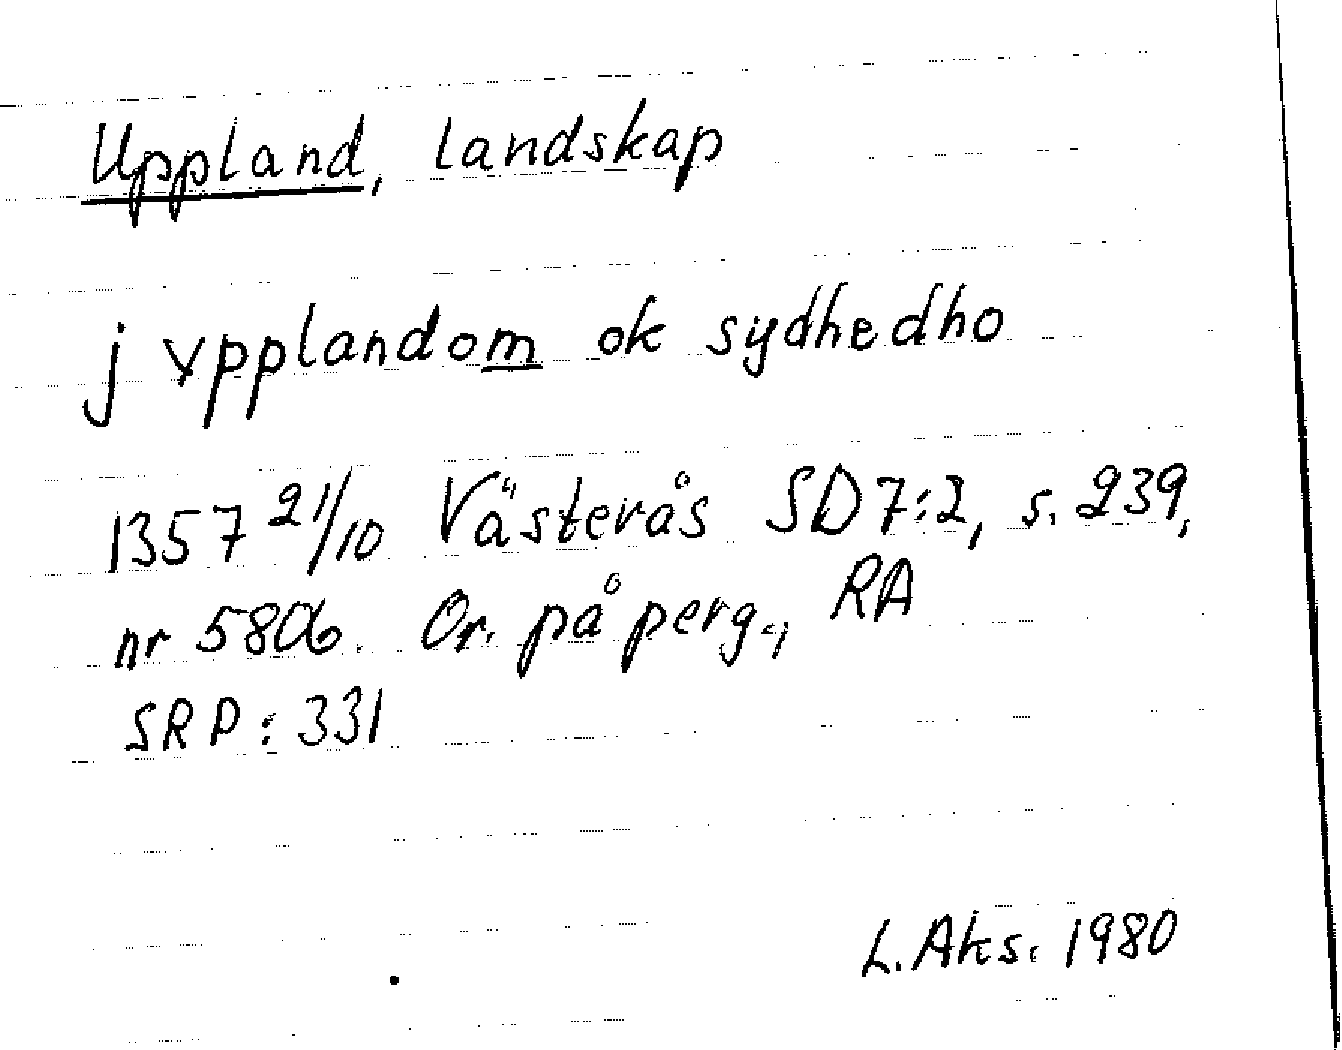 Uppland, landskap
j vpplandom ok sydhedho
1357 21/10 Västerås SD 7:2, s. 239,
nr 5806. Or. på perg., RA
SRP: 331
L. Aks. 1980